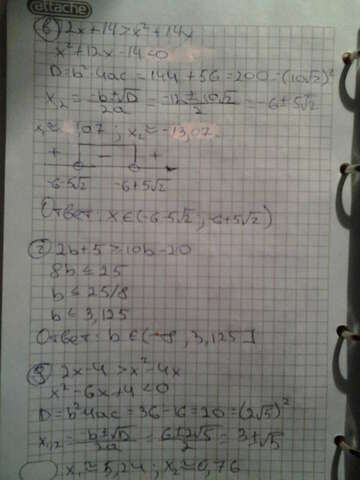 attache
в) 2x+14>x²+14x
x²+12x-14<0
D=b²-4ac=144+56=200=(10√2)²
x₁,₂=(-b±√D)/2a=(-12±10√2)/2=-6±5√2
x₁≈1,07; x₂≈-13,07
+ - +
-6-5√2 -6+5√2
Ответ: x∈(-6-5√2; -6+5√2)
г) 2b+5≥10b-20
8b≤25
b≤25/8
b≤3,125
Ответ: b∈(-∞, 3,125]
д) 2x-4>x²-4x
x²-6x+4<0
D=b²-4ac=36-16=20=(2√5)²
x₁,₂=(-b±√D)/2a=(6±2√5)/2=3±√5
x₁≈5,24; x₂≈0,76